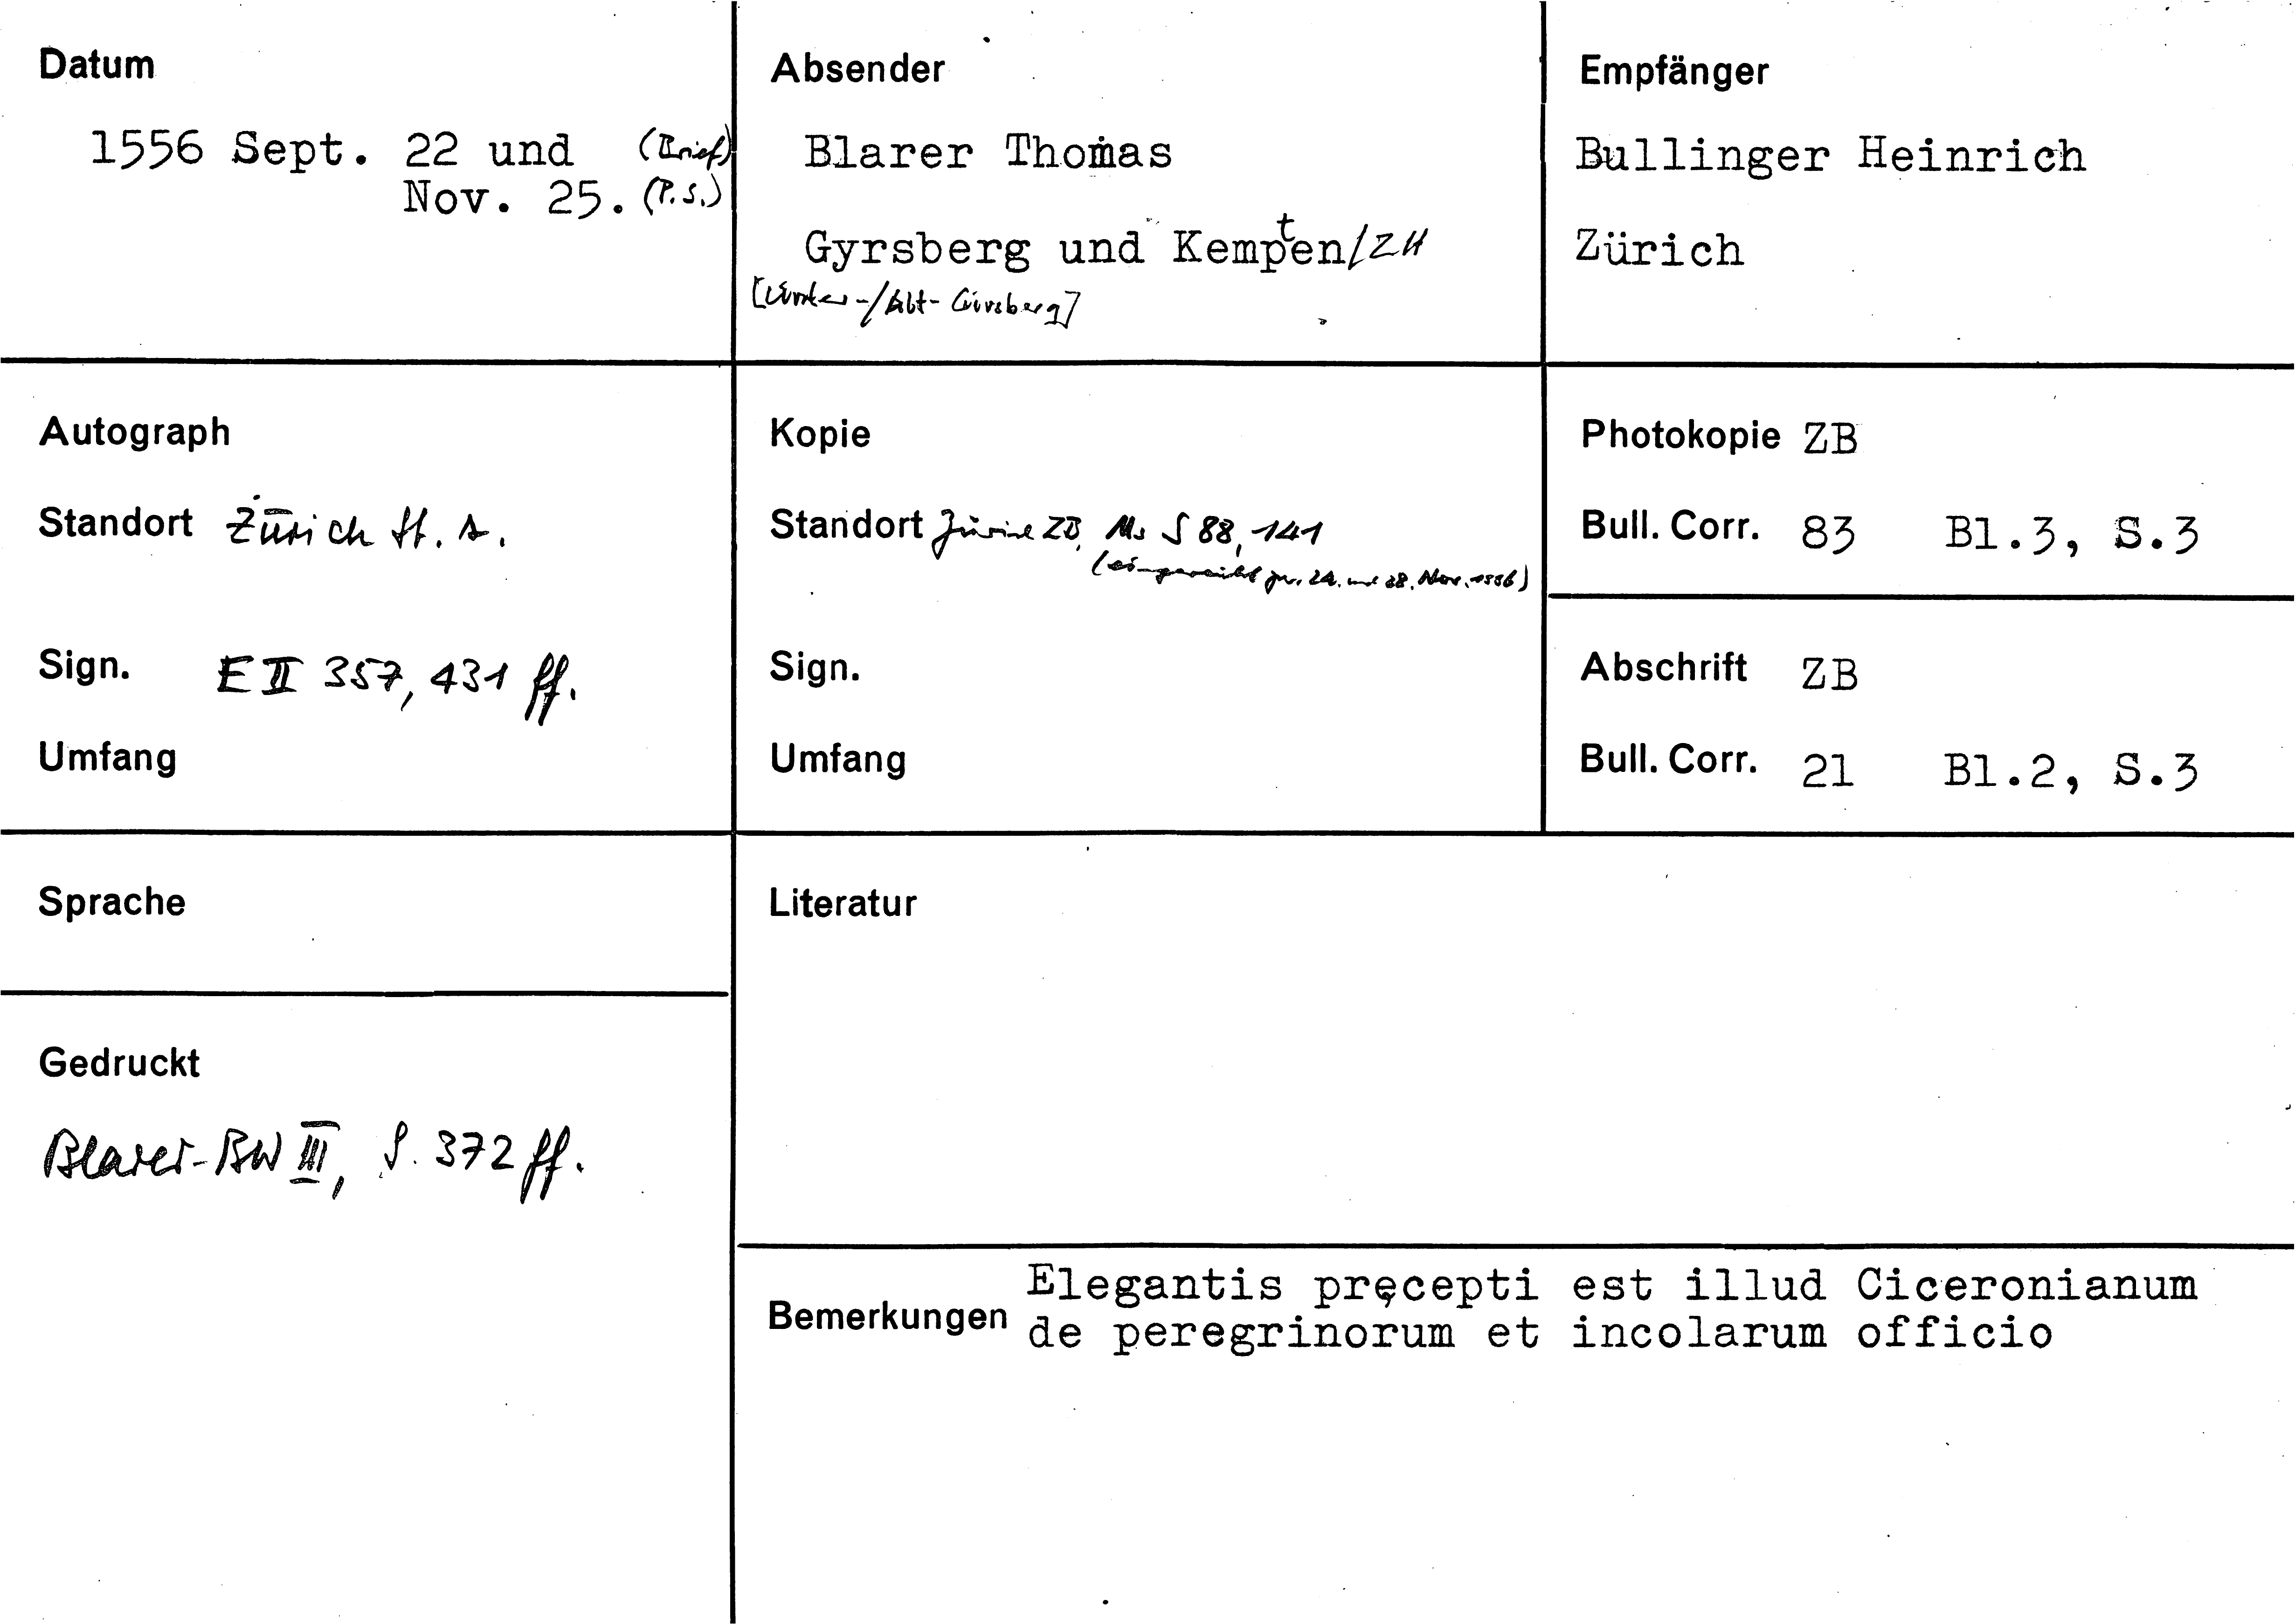 Datum
1556 Sept. 22 und (Brief)
Nov. 25. (P.S.)
Absender
Blarer Thomas
Gyrsberg und Kempten/ZH
[Unter-/Alt-Girsberg]
Empfänger
Bullinger Heinrich
Zürich
Autograph
Standort Zürich St. A.
Sign. E II 357, 431 ff.
Umfang
Kopie
Standort Zürich ZB, Ms S 88, 141
(eingereiht zw. 24. und 28. Nov. 1556)
Sign.
Umfang
Photokopie ZB
Bull. Corr. 83 Bl.3, S.3
Abschrift ZB
Bull. Corr. 21 Bl.2, S.3
Sprache
Gedruckt
Blarer-BW III, S. 372 ff.
Literatur
Bemerkungen
Elegantis pręcepti est illud Ciceronianum
de peregrinorum et incolarum officio